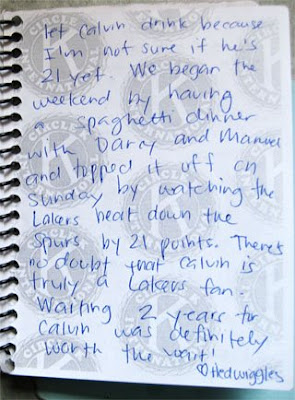 let calvin drink because
I'm not sure if he's
21 yet. We began the
weekend by having
a spaghetti dinner
with Darcy and Manuel
and topped it off on
Sunday by watching the
Lakers beat down the
Spurs by 21 points. There's
no doubt that calvin is
truly a Lakers fan.
Waiting 2 years for
Calvin was definitely
worth the wait!
♡Hedwiggles